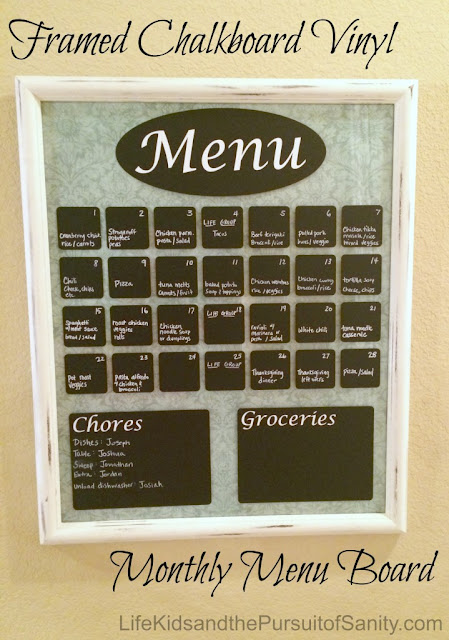 Framed Chalkboard Vinyl
Menu
1
Cranberry chick
rice/carrots
2
Stroganoff
potatoes
peas
3
Chicken parm
pasta/salad
4
LIFE GROUP
Tacos
5
Beef teriyaki
Broccoli/rice
6
Pulled pork
buns/veggie
7
Chicken tikka
masala/rice
mixed veggies
8
Chili
Cheese, chips
etc.
9
Pizza
10
tuna melts
carrots/fruit
11
baked potato
soup/toppings
12
Chicken
rice/veggies
13
Chicken curry
broccoli/rice
14
tortilla soup
Cheese, chips
15
Spaghetti
w/meat sauce
bread/salad
16
roast chicken
veggies
rolls
17
Chicken
noodle soup
or dumplings
18
LIFE GROUP
19
ravioli w/
marinara or
pesto/salad
20
white chili
21
tuna noodle
casserole
22
Pot roast
veggies
23
pasta alfredo
w/chicken &
broccoli
24
25
LIFE GROUP
26
Thanksgiving
dinner
27
Thanksgiving
leftovers
28
pizza/salad
Chores
Dishes: Joseph
Table: Joshua
Sweep: Jonathan
Extra: Jordan
unload dishwasher: Josiah
Groceries
Monthly Menu Board
LifeKidsandthePursuitofSanity.com